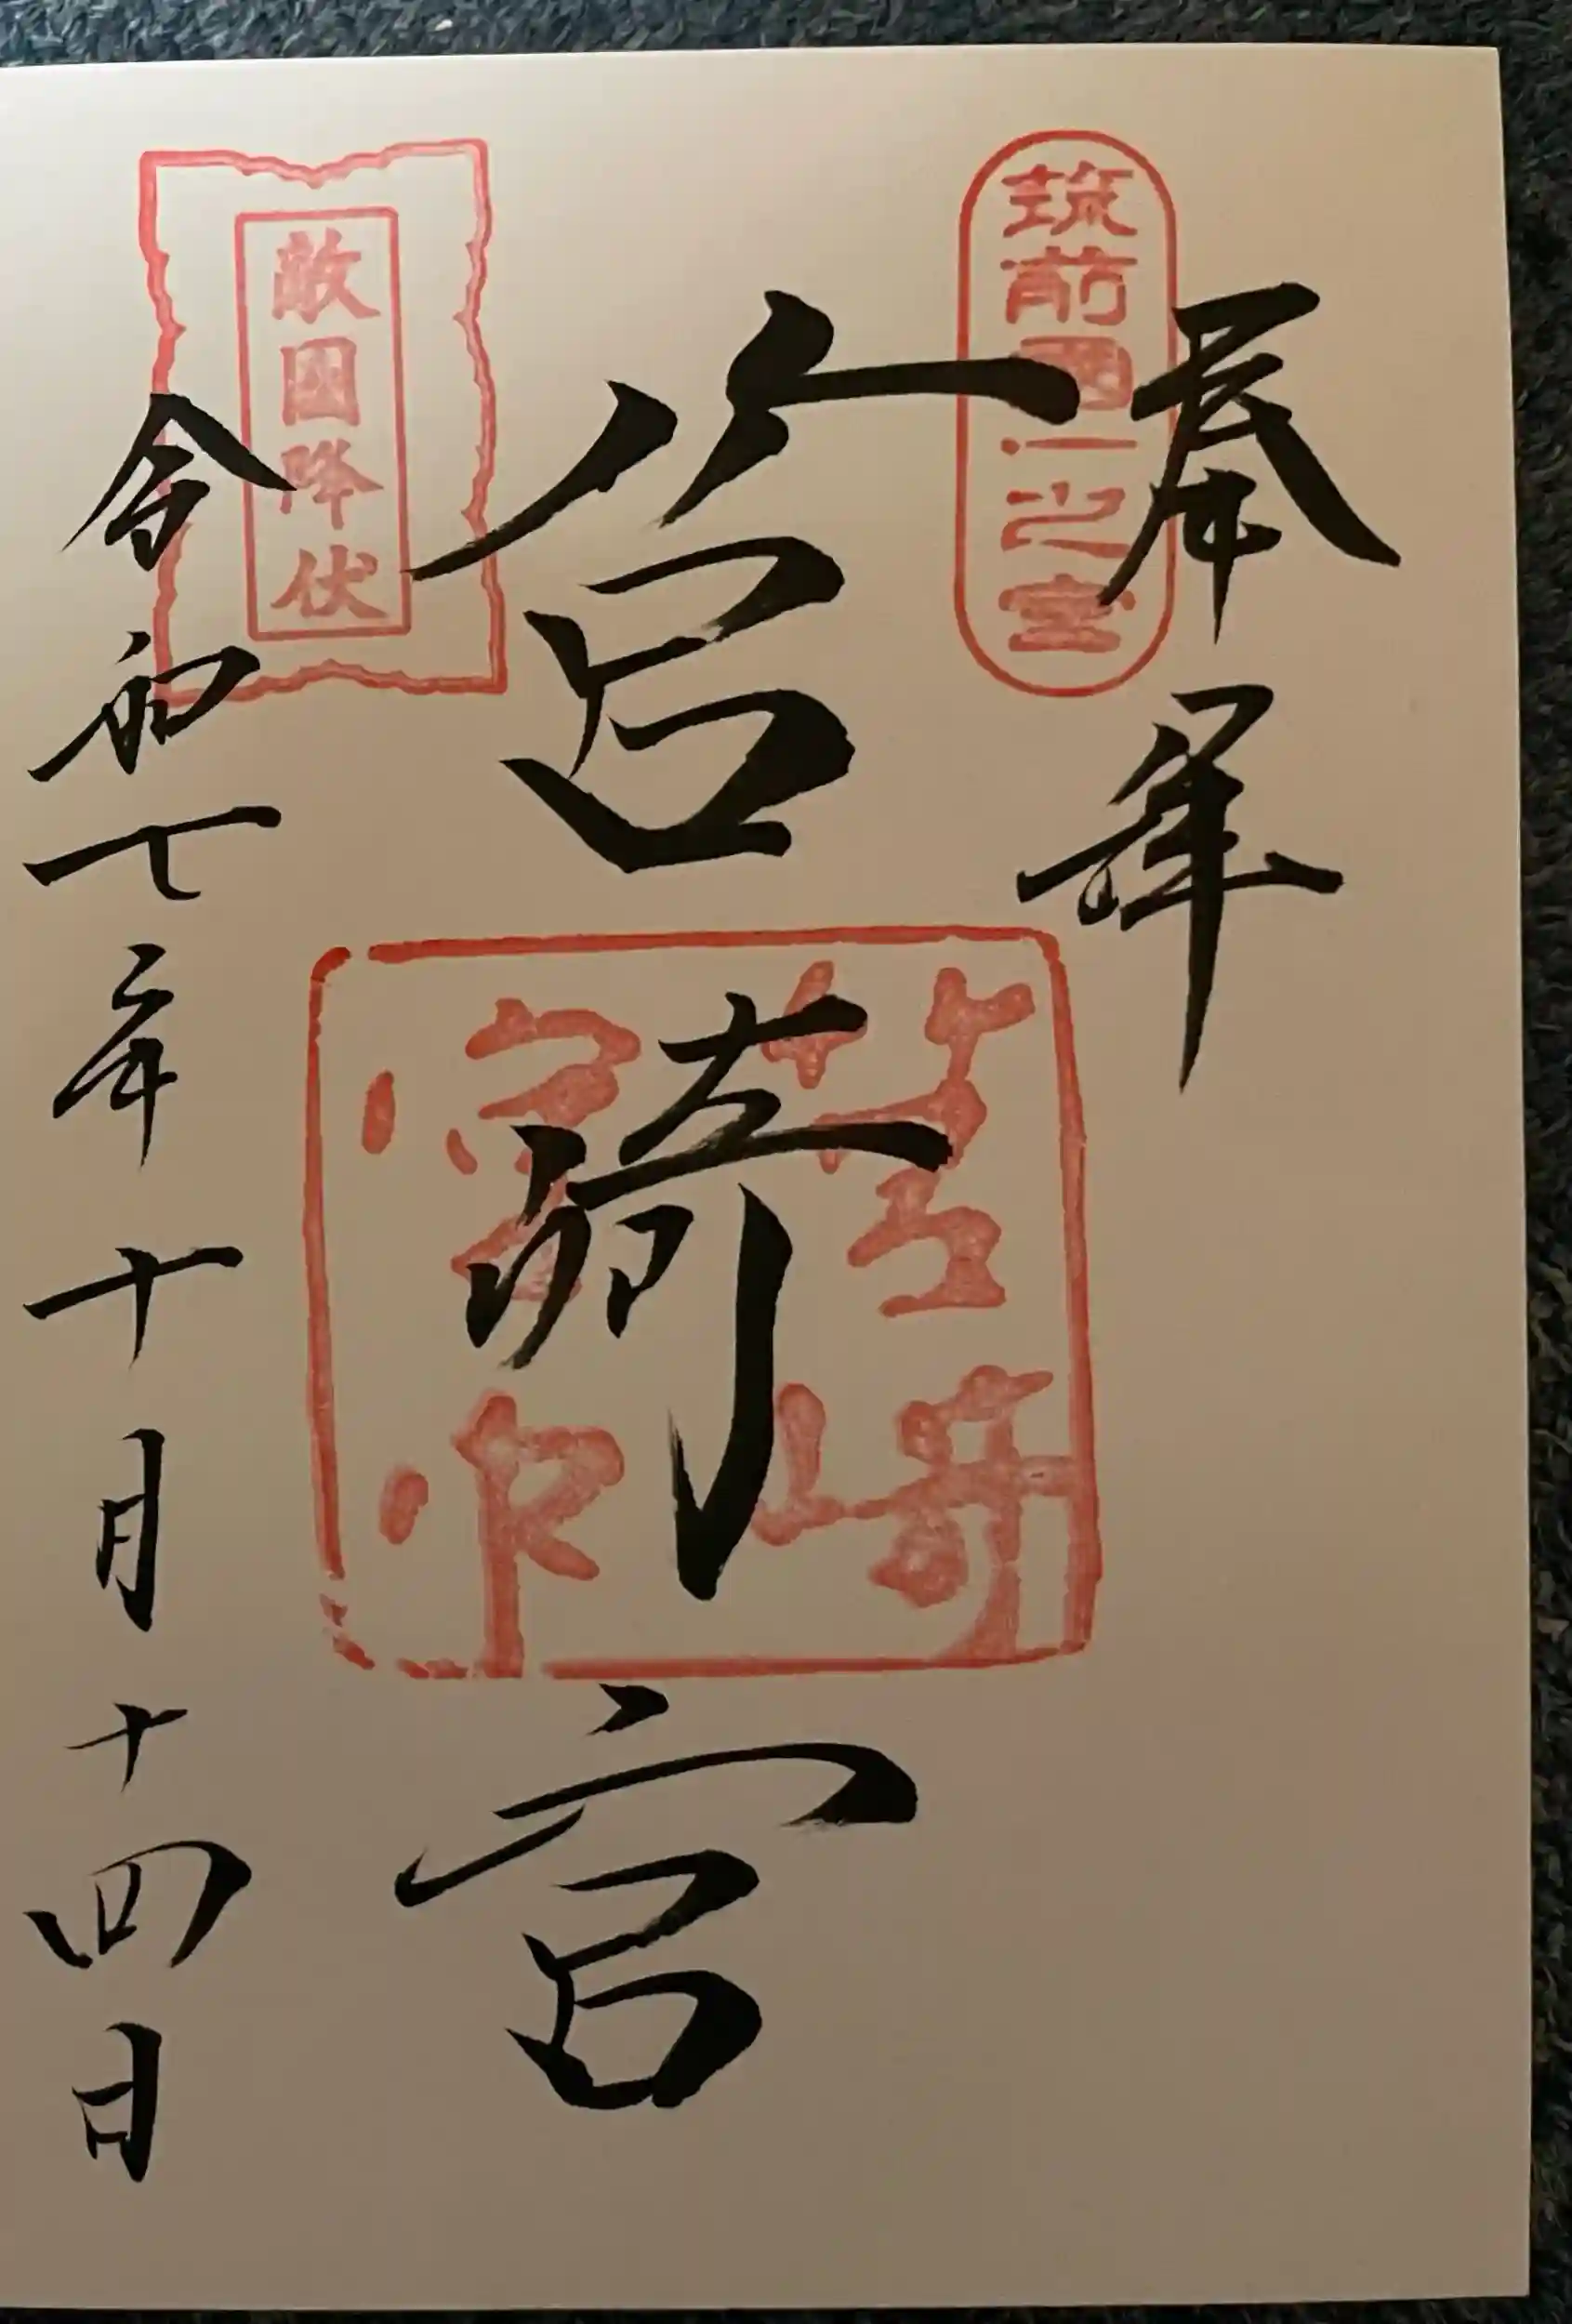 奉拝
筑前國一之宮
筥崎宮
筥崎宮印
敵國降伏
令和七年十月十四日